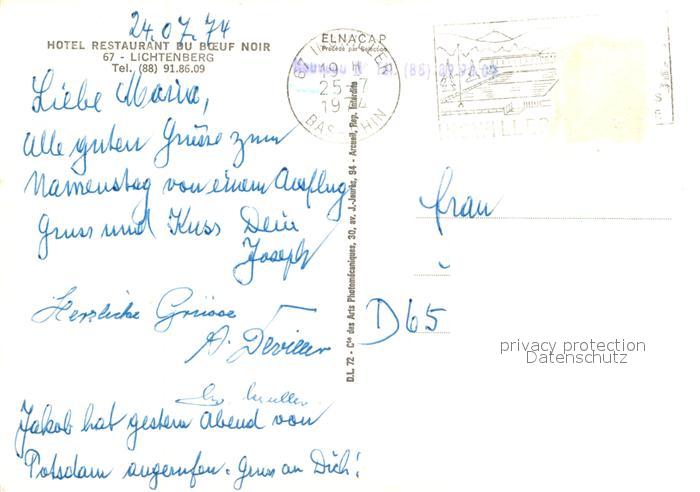 24.07.74
HOTEL RESTAURANT DU BŒUF NOIR
67 - LICHTENBERG
Tel. (88) 91.86.09
Liebe Maria,
Alle guten Grüsse zum
Namenstag von einem Ausflug
Gruss und Kuss Dein
Joseph
Herzliche Grüsse
A. Deviller
Jakob hat gestern Abend von
Potsdam angerufen. Gruss an Dich!
ELNACAP
Procédé par Sélection
19 H
25-7
1974
BAS-RHIN
INGWILLER
D.L. 72 - Cie des Arts Photomécaniques, 30, av. J.-Jaurès, 94 - Arcueil, Rep. Interdite
Frau
D65
privacy protection
Datenschutz